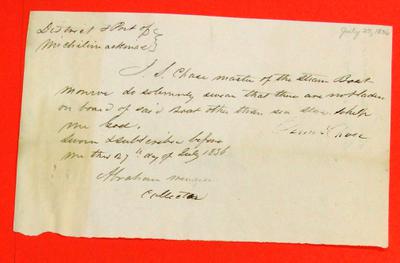 July 27, 1836
District & Port of
Michilimackinac
I. S. Chase master of the Steam Boat
Monroe do solemnly swear that there are not laden
on board of said Boat other than sea stores. So help
me God.
Chase
Sworn & Subscribe before
me this 27th day of July 1836
Abraham
Collector